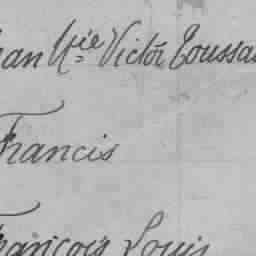 ean Mie Victor Toussa
Francis
François Louis